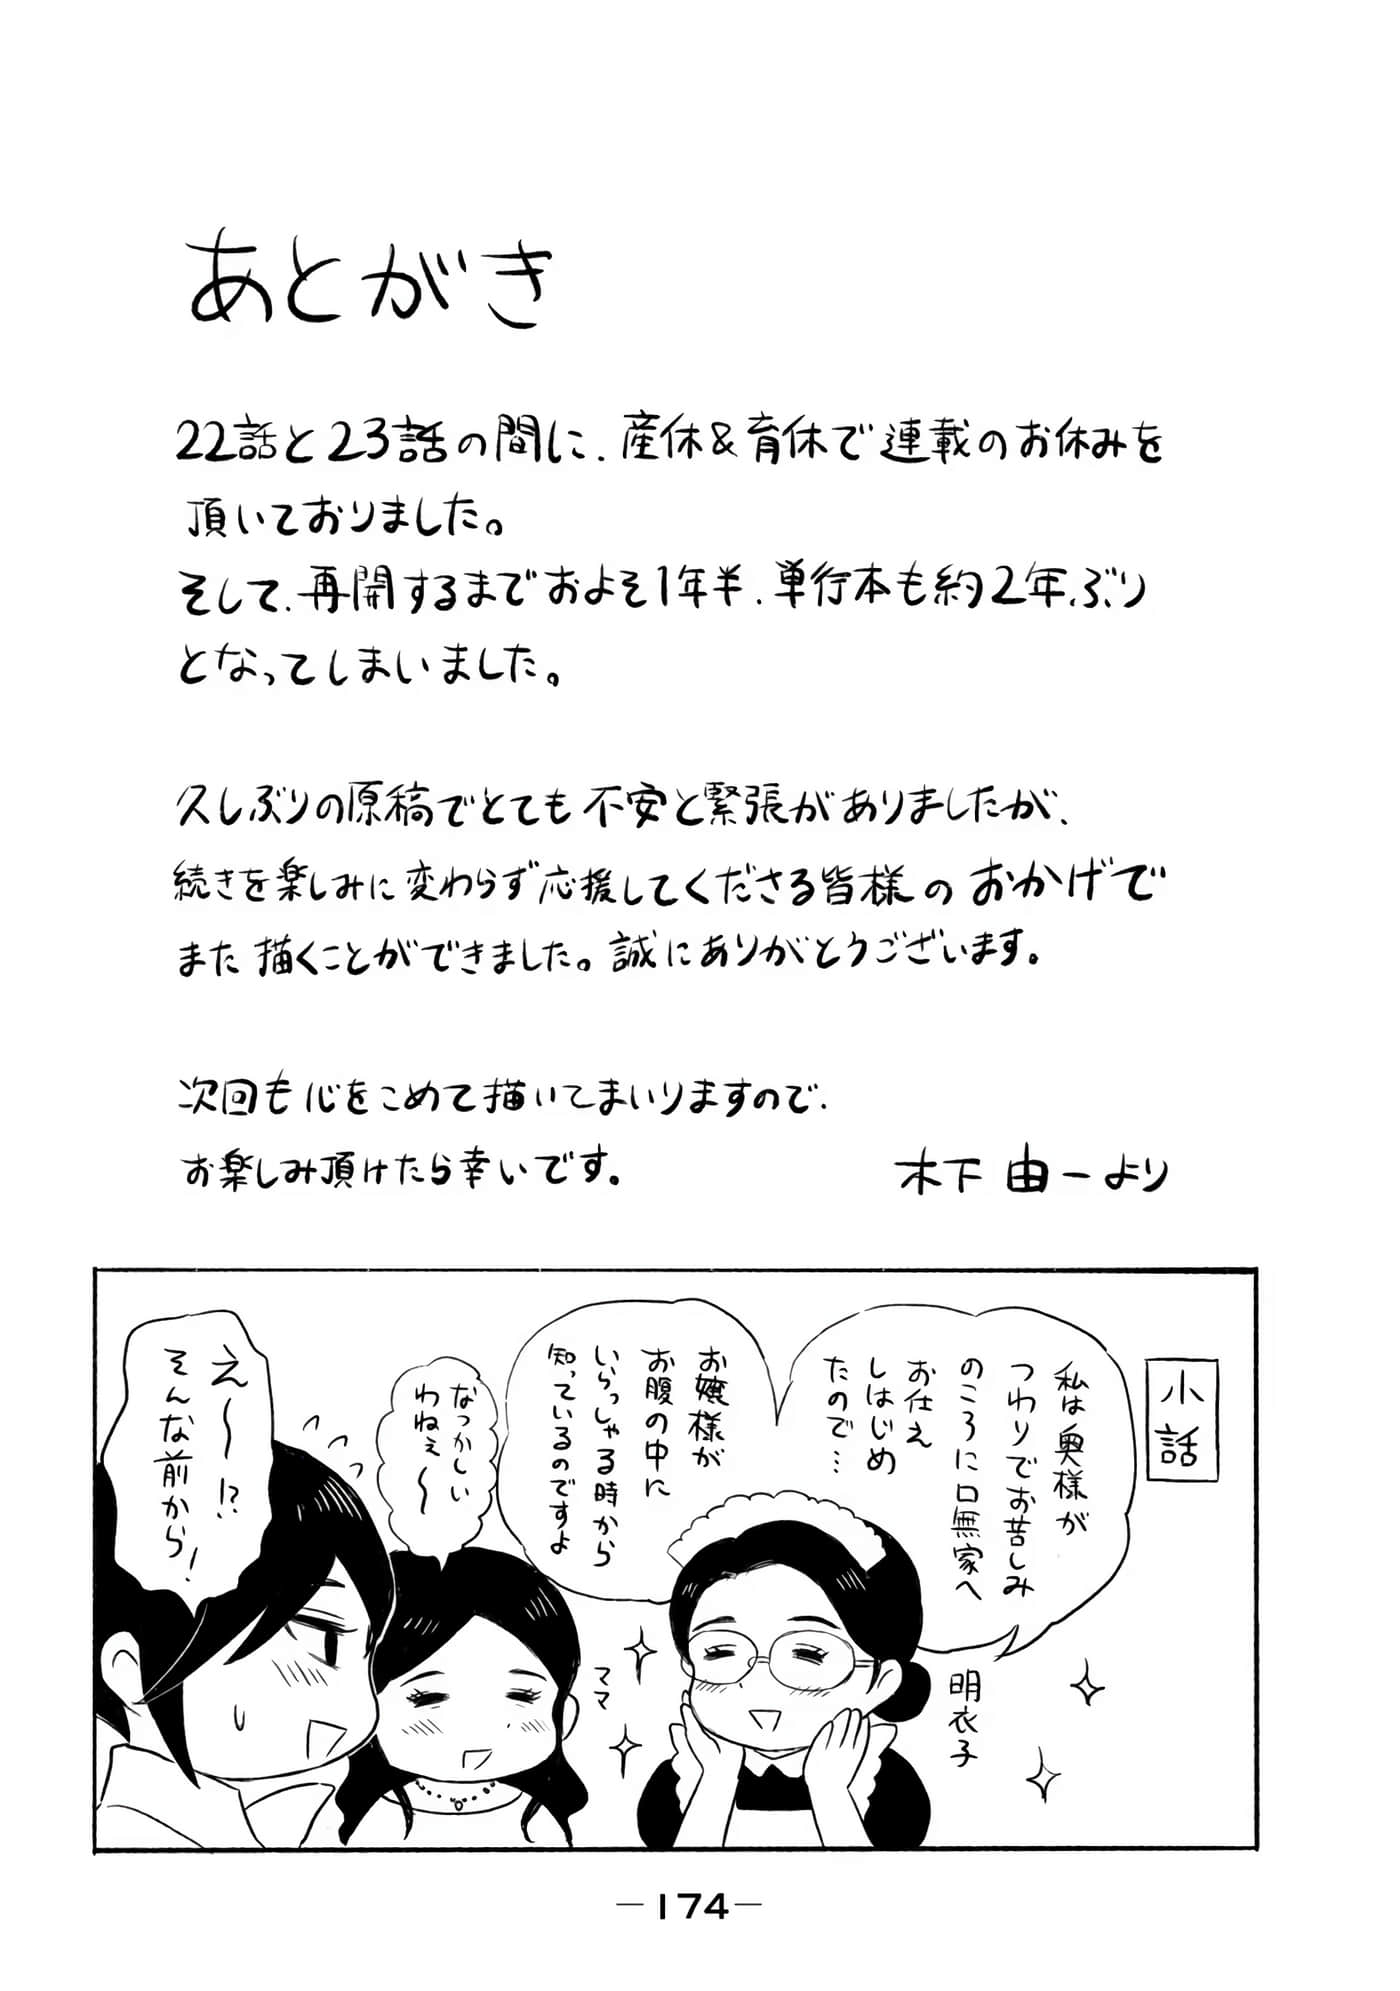 あとがき
22話と23話の間に、産休&育休で連載のお休みを
頂いておりました。
そして、再開するまでおよそ1年半、単行本も約2年ぶり
となってしまいました。
久しぶりの原稿でとても不安と緊張がありましたが、
続きを楽しみに変わらず応援してくださる皆様のおかげで
また描くことができました。誠にありがとうございます。
次回も心をこめて描いてまいりますので、
お楽しみ頂けたら幸いです。
木下由一より
小話
私は奥様が
つわりでお苦しみ
のころに口無家へ
お仕え
しはじめ
たので…
お嬢様が
お腹の中に
いらっしゃる時から
知っているのですよ
明衣子
なつかしい
わねぇ〜
ママ
え〜!?
そんな前から!
—174—